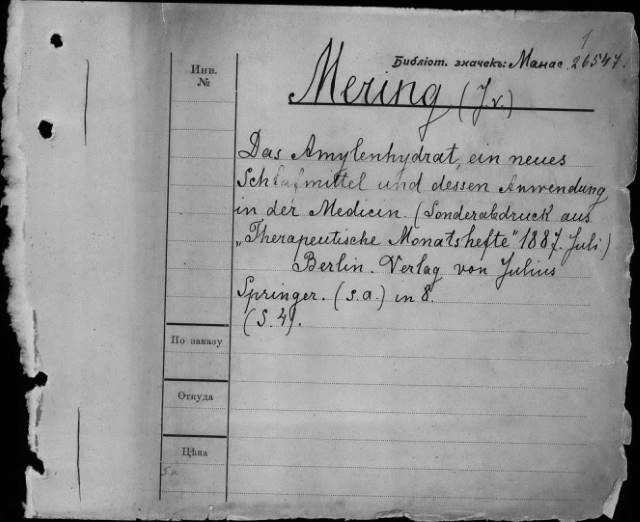 1
Библіот. значекъ: Манас. 26547.
Инв.
№
Mering (J. v.)
Das Amylenhydrat, ein neues
Schlafmittel und dessen Anwendung
in der Medicin. (Sonderabdruck aus
„Therapeutische Monatshefte" 1887. Juli)
Berlin. Verlag von Julius
Springer. (s. a.) in 8.
(S. 4).
По заказу
Откуда
Цѣна